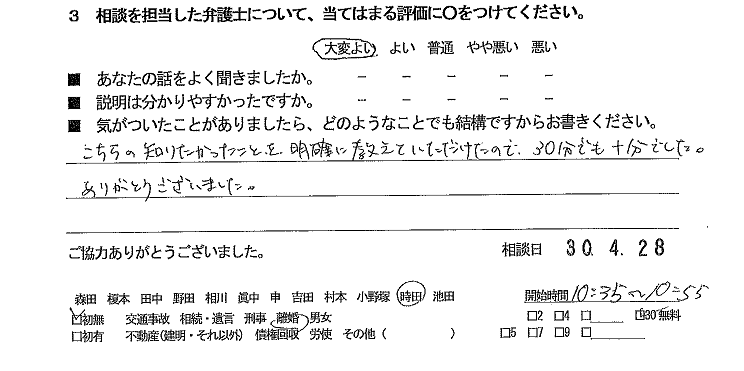 3 相談を担当した弁護士について、当てはまる評価に〇をつけてください。
大変よい よい 普通 やや悪い 悪い
■ あなたの話をよく聞きましたか。 － － － － －
■ 説明は分かりやすかったですか。 － － － － －
■ 気がついたことがありましたら、どのようなことでも結構ですからお書きください。
こちらの知りたかったことを明確に教えていただけたので、30分でも十分でした。
ありがとうございました。
ご協力ありがとうございました。 相談日 30.4.28
森田 榎本 田中 野田 相川 眞中 申 吉田 村本 小野塚 時田 池田 開始時間 10:35～10:55
☑初無 交通事故 相続・遺言 刑事 離婚 男女 □2 □4 □ □30´無料
□初有 不動産(建明・それ以外) 債権回収 労使 その他 ( ) □5 □7 □9 □